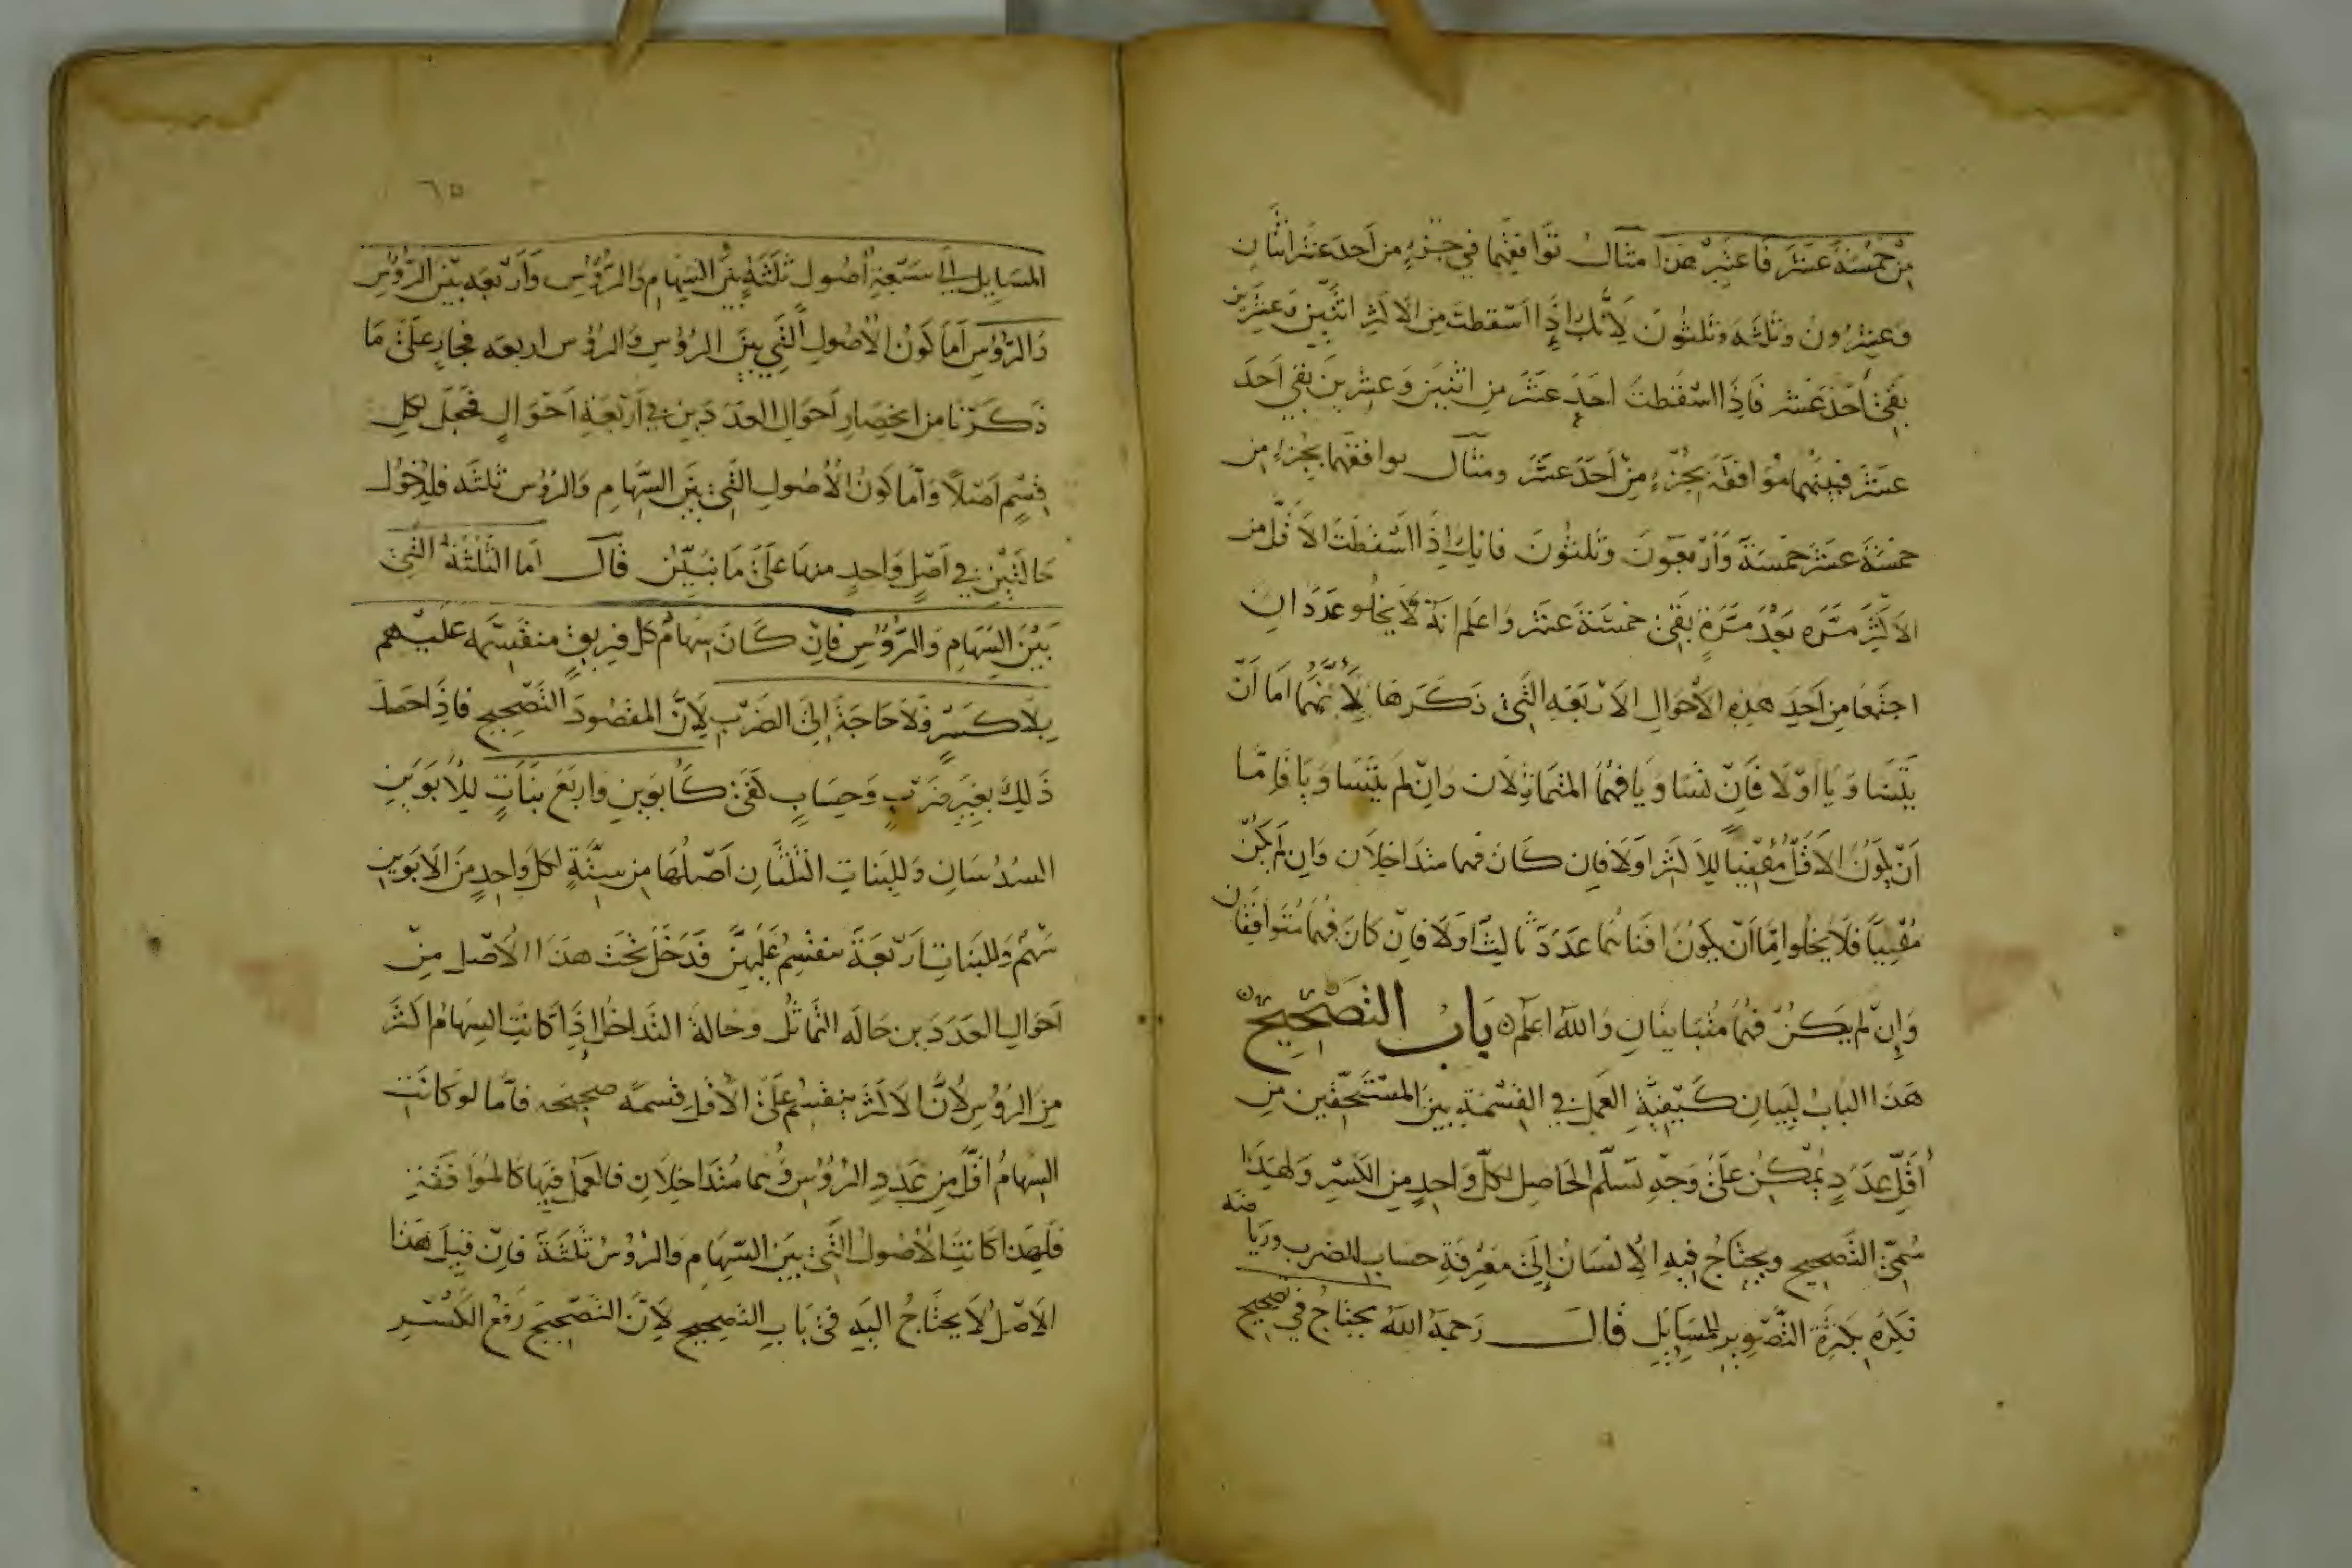 من خمسة عشر فاعتبر هذا مثال توافقهما في جزء من احد عشر اثنان
وعشرون وثلثه وثلثون لانك اذا اسقطت من الاكثر اثنين وعشرين
بقي احد عشر فاذا اسقطت احد عشر من اثنين وعشرين بقي احد
عشر فبينهما موافقة بجزء من احد عشر ومثال توافقهما بجزء من
خمسة عشر خمسة واربعون وثلثون فانك اذا اسقطت الاقل من
الاكثر مره بعد مرة بقي خمسة عشر واعلم انه لا يخلو عددان
اجتمعا من احد هذه الاحوال الاربعه التي ذكرها لانهما اما ان
يتساويا اولا فان تساويا فهما المتماثلان وان لم يتساويا فاما
ان يكون الاقل مفنيا للاكثر اولا فان كان فهما متداخلان وان لم يكن
مفنيا فلا يخلوا اما ان يكون افناهما عدد ثالث اولا فان كان فهما متوافقان
وان لم يكن فهما متباينان والله اعلم باب التصحيح
هذا الباب لبيان كيفية العمل في القسمة بين المستحقين من
اقل عدد يمكن على وجه تسلم الحاصل لكل واحد من الكسر ولهذا
سمي التصحيح ويحتاج فيه الانسان الى معرفة حساب الضرب ورياضة
فكره بكثرة التصوير للمسايل قال رحمة الله يحتاج في تصحيح
٦٥
المسايل الى سبعة اصول ثلثة بين السهام والرؤس واربعه بين الرؤس
والرؤس اما كون الاصول التي بين الرؤس والرؤس اربعه فجار على ما
ذكرنا من انحصار احوال العددين في اربعة احوال فجعل لكل
قسم اصلا واما كون الاصول التي بين السهام والرؤس ثلثه فلدخول
حالتين في اصل واحد منها على ما نبين قال اما الثلثة التي
بين السهام والرؤس فان كان سهام كل فريق منقسمه عليهم
بلا كسر فلا حاجة الى الضرب لان المقصود التصحيح فاذا حصل
ذلك بغير ضرب وحساب كفى كابوين واربع بنات للابوين
السدسان وللبنات الثلثان اصلها من ستة لكل واحد من الابوين
سهم وللبنات اربعة منقسم عليهن فدخل تحت هذا الاصل من
احوال العددين حاله التماثل وحالة التداخل اذا كانت السهام اكثر
من الرؤس لان الاكثر ينقسم على الاقل قسمة صحيحه فاما لو كانت
السهام اقل من عدد الرؤس وهما متداخلان فالعمل فيها كالموافقة
فلهذا كانت الاصول التي بين السهام والرؤس ثلثة فان قيل هذا
الاصل لا يحتاج اليه في باب التصحيح لان التصحيح رفع الكسر